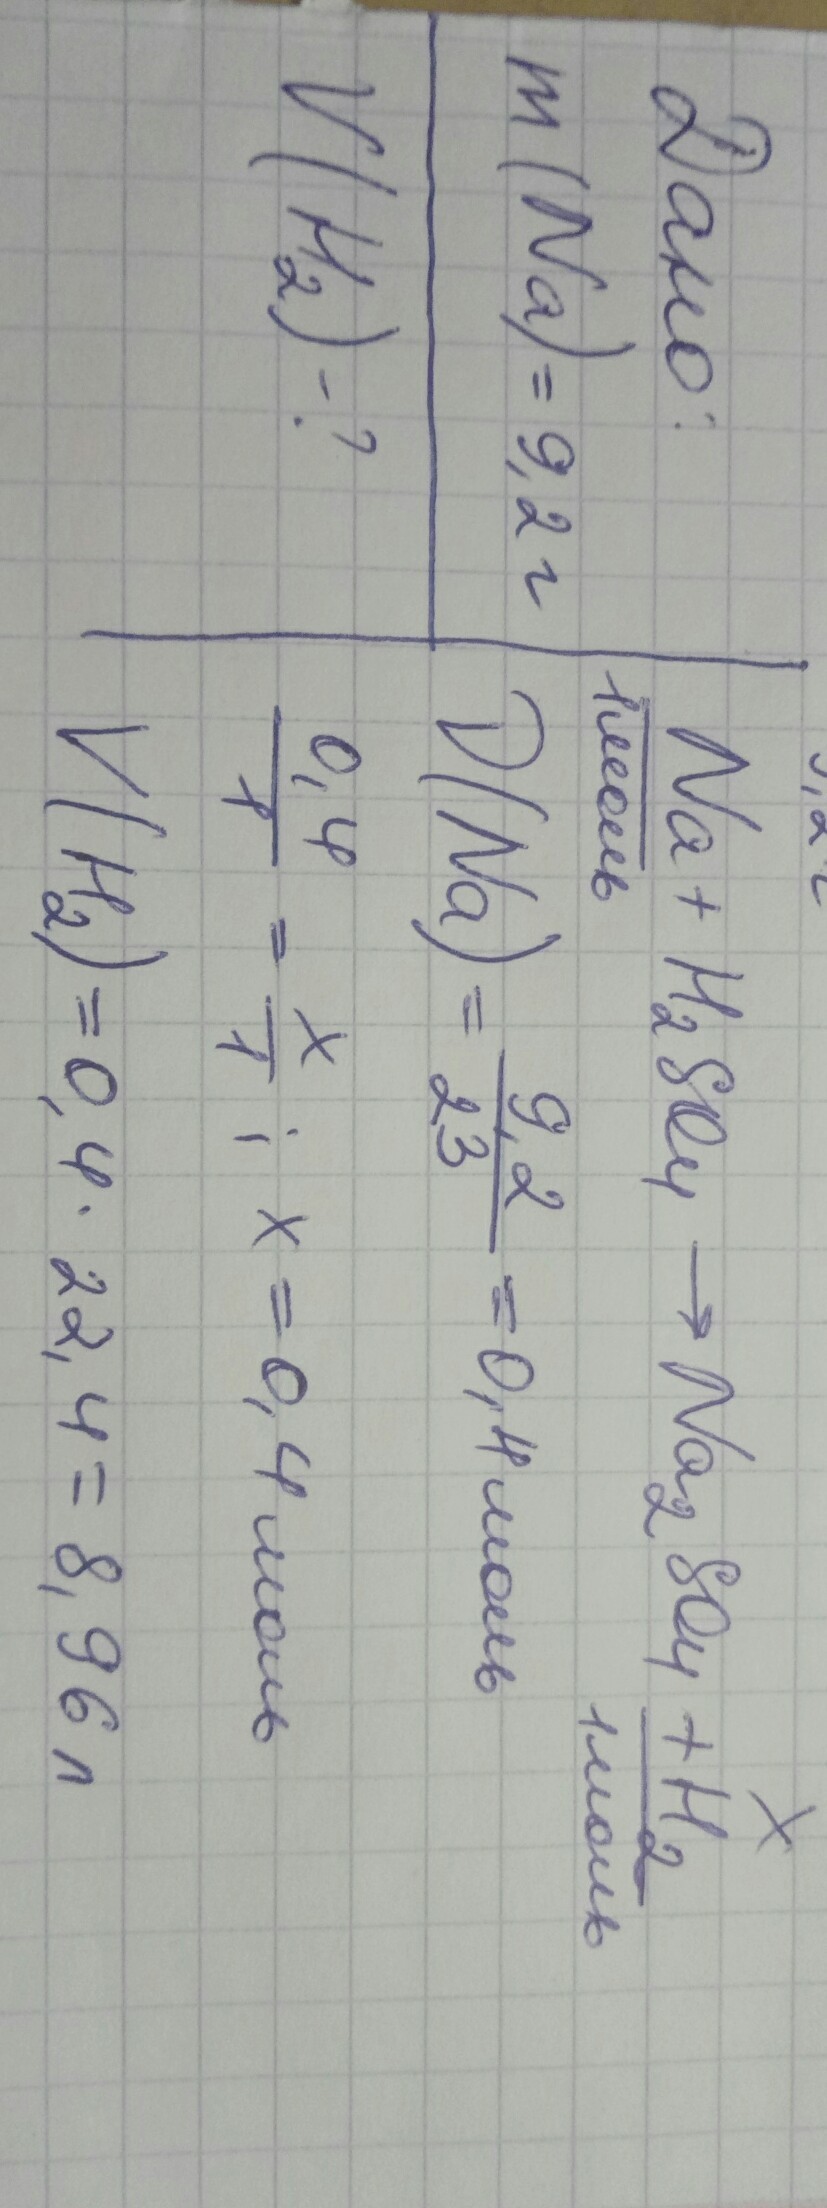 Дано:
m(Na)=9,2 г
V(H2)-?
9,2 г
x
Na + H2SO4 → Na2SO4 + H2
1моль 1моль
ν(Na) = 9,2/23 = 0,4 моль
0,4/1 = x/1; x = 0,4 моль
V(H2) = 0,4 · 22,4 = 8,96 л